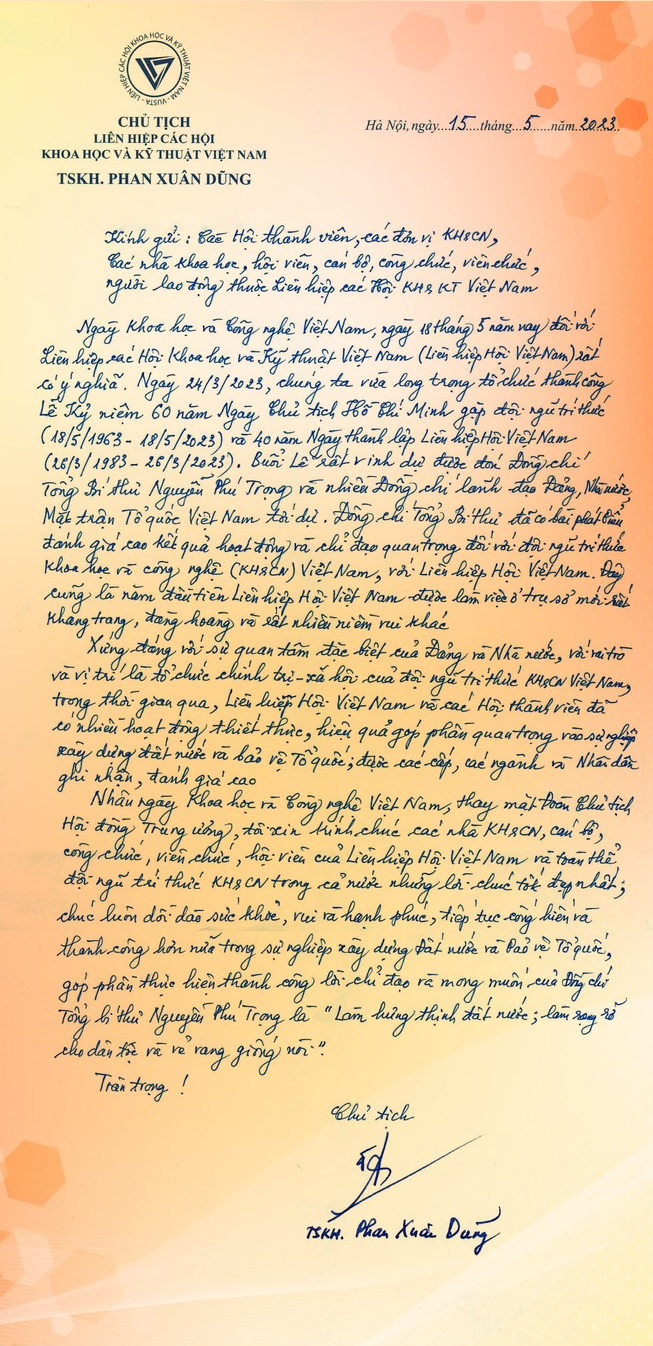 LIÊN HIỆP CÁC HỘI KHOA HỌC VÀ KỸ THUẬT VIỆT NAM - VUSTA -
CHỦ TỊCH
LIÊN HIỆP CÁC HỘI
KHOA HỌC VÀ KỸ THUẬT VIỆT NAM
TSKH. PHAN XUÂN DŨNG
Hà Nội, ngày...15....tháng...5.....năm 2023..
Kính gửi: Các Hội thành viên, các đơn vị KH&CN,
Các nhà khoa học, hội viên, cán bộ, công chức, viên chức,
người lao động thuộc Liên hiệp các Hội KH&KT Việt Nam
Ngày Khoa học và Công nghệ Việt Nam, ngày 18 tháng 5 năm nay đối với
Liên hiệp các Hội Khoa học và Kỹ thuật Việt Nam (Liên hiệp Hội Việt Nam) rất
có ý nghĩa. Ngày 24/3/2023, chúng ta vừa long trọng tổ chức thành công
Lễ Kỷ niệm 60 năm Ngày Chủ tịch Hồ Chí Minh gặp đội ngũ trí thức
(18/5/1963 - 18/5/2023) và 40 năm Ngày thành lập Liên hiệp Hội Việt Nam
(26/3/1983 - 26/3/2023). Buổi Lễ rất vinh dự được đón Đồng chí
Tổng Bí thư Nguyễn Phú Trọng và nhiều Đồng chí lãnh đạo Đảng, Nhà nước,
Mặt trận Tổ quốc Việt Nam tới dự. Đồng chí Tổng Bí thư đã có bài phát biểu
đánh giá cao kết quả hoạt động và chỉ đạo quan trọng đối với đội ngũ trí thức
khoa học và công nghệ (KH&CN) Việt Nam, với Liên hiệp Hội Việt Nam. Đây
cũng là năm đầu tiên Liên hiệp Hội Việt Nam được làm việc ở trụ sở mới rất
khang trang, đàng hoàng và rất nhiều niềm vui khác
Xứng đáng với sự quan tâm đặc biệt của Đảng và Nhà nước, với vai trò
và vị trí là tổ chức chính trị - xã hội của đội ngũ trí thức KH&CN Việt Nam,
trong thời gian qua, Liên hiệp Hội Việt Nam và các Hội thành viên đã
có nhiều hoạt động thiết thực, hiệu quả góp phần quan trọng vào sự nghiệp
xây dựng đất nước và bảo vệ Tổ quốc; được các cấp, các ngành và Nhân dân
ghi nhận, đánh giá cao
Nhân ngày Khoa học và Công nghệ Việt Nam, thay mặt Đoàn Chủ tịch
Hội đồng Trung ương, tôi xin kính chúc các nhà KH&CN, cán bộ,
công chức, viên chức, hội viên của Liên hiệp Hội Việt Nam và toàn thể
đội ngũ trí thức KH&CN trong cả nước những lời chúc tốt đẹp nhất;
chúc luôn dồi dào sức khỏe, vui và hạnh phúc, tiếp tục cống hiến và
thành công hơn nữa trong sự nghiệp xây dựng Đất nước và Bảo vệ Tổ quốc,
góp phần thực hiện thành công lời chỉ đạo và mong muốn của Đồng chí
Tổng bí thư Nguyễn Phú Trọng là "Làm hưng thịnh đất nước; làm rạng rỡ
cho dân tộc và vẻ vang giống nòi".
Trân trọng !
Chủ tịch
TSKH. Phan Xuân Dũng